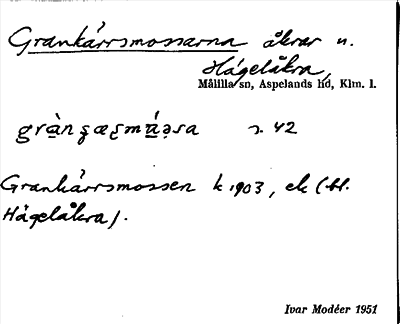 Grankärrsmossarna åkrar u.
Hägelåkra,
Målilla sn, Aspelands hd, Klm. l.
s. 42
Grankärrsmossen k 1903, ek (bl.
Hägelåkra).
Ivar Modéer 1951